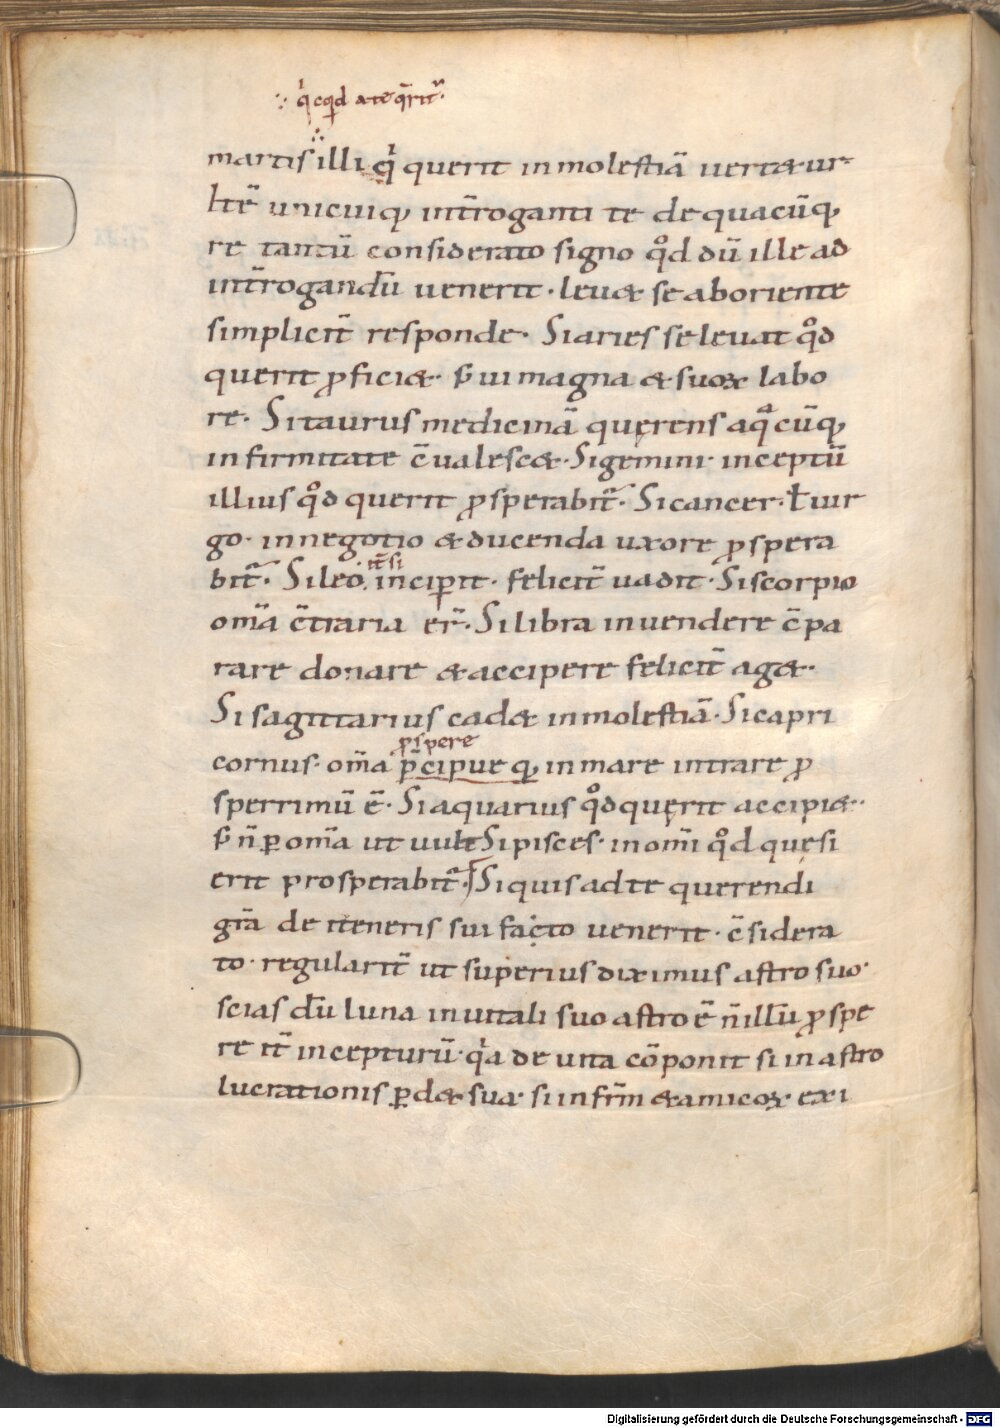 ∴ qͥcqd̄ a te q̄rit᷑·
martis ∴ illi qͥ querit in molestiā uertet᷑ ur⸗
l tē unicuiqꝫ int̄roganti te de quacūqꝫ
re tantū considerato signo qͦd dū ille ad
int̄rogandū uenerit · leuet se ab oriente
simplicit̄ responde · Si aries se leuat qͦd
querit ꝓficiet · sꝫ ui magna et suoꝝ labo
re · Si taurus medicinā quęrens a qͣcūqꝫ
infirmitate c̄ualescet · Si gemini · inceptū
illius qͦd querit ꝓsperabit᷑ · Si cancer · ł uir
go · in negotio et ducenda uxore ꝓspera
bit᷑ · Si leo · it̄ si incipit · felicit̄ uadit · Si scorpio
om̄a c̄traria er̄ · Si libra in uendere c̄pa
rare donare et accipere felicit̄ aget ·
Si sagittarius cadet in molestiā · Si capri
ꝓspere
cornus · om̄a p̄cipue qꝫ in mare intrare ꝓ
sperrimū ē · Si aquarius qͦd quęrit accipiet ·
sꝫ n̄ ꝑ om̄a ut uult Si pisces · in om̄i qͦd quęsi
erit prosperabit᷑ · Si quis ad te querendi
gr̄a de iteneris sui facto uenerit · c̄sidera
to · regularit̄ ut superius diximus astro suo ·
scias dū luna in uitali suo astro ē n̄ illū ꝓspe
re it̄ incepturū · qͥa de uita cōponit si in astro
lucrationis ꝑdet sua · si in firm̄ et amicoꝝ · exi
Digitalisierung gefördert durch die Deutsche Forschungsgemeinschaft - DFG